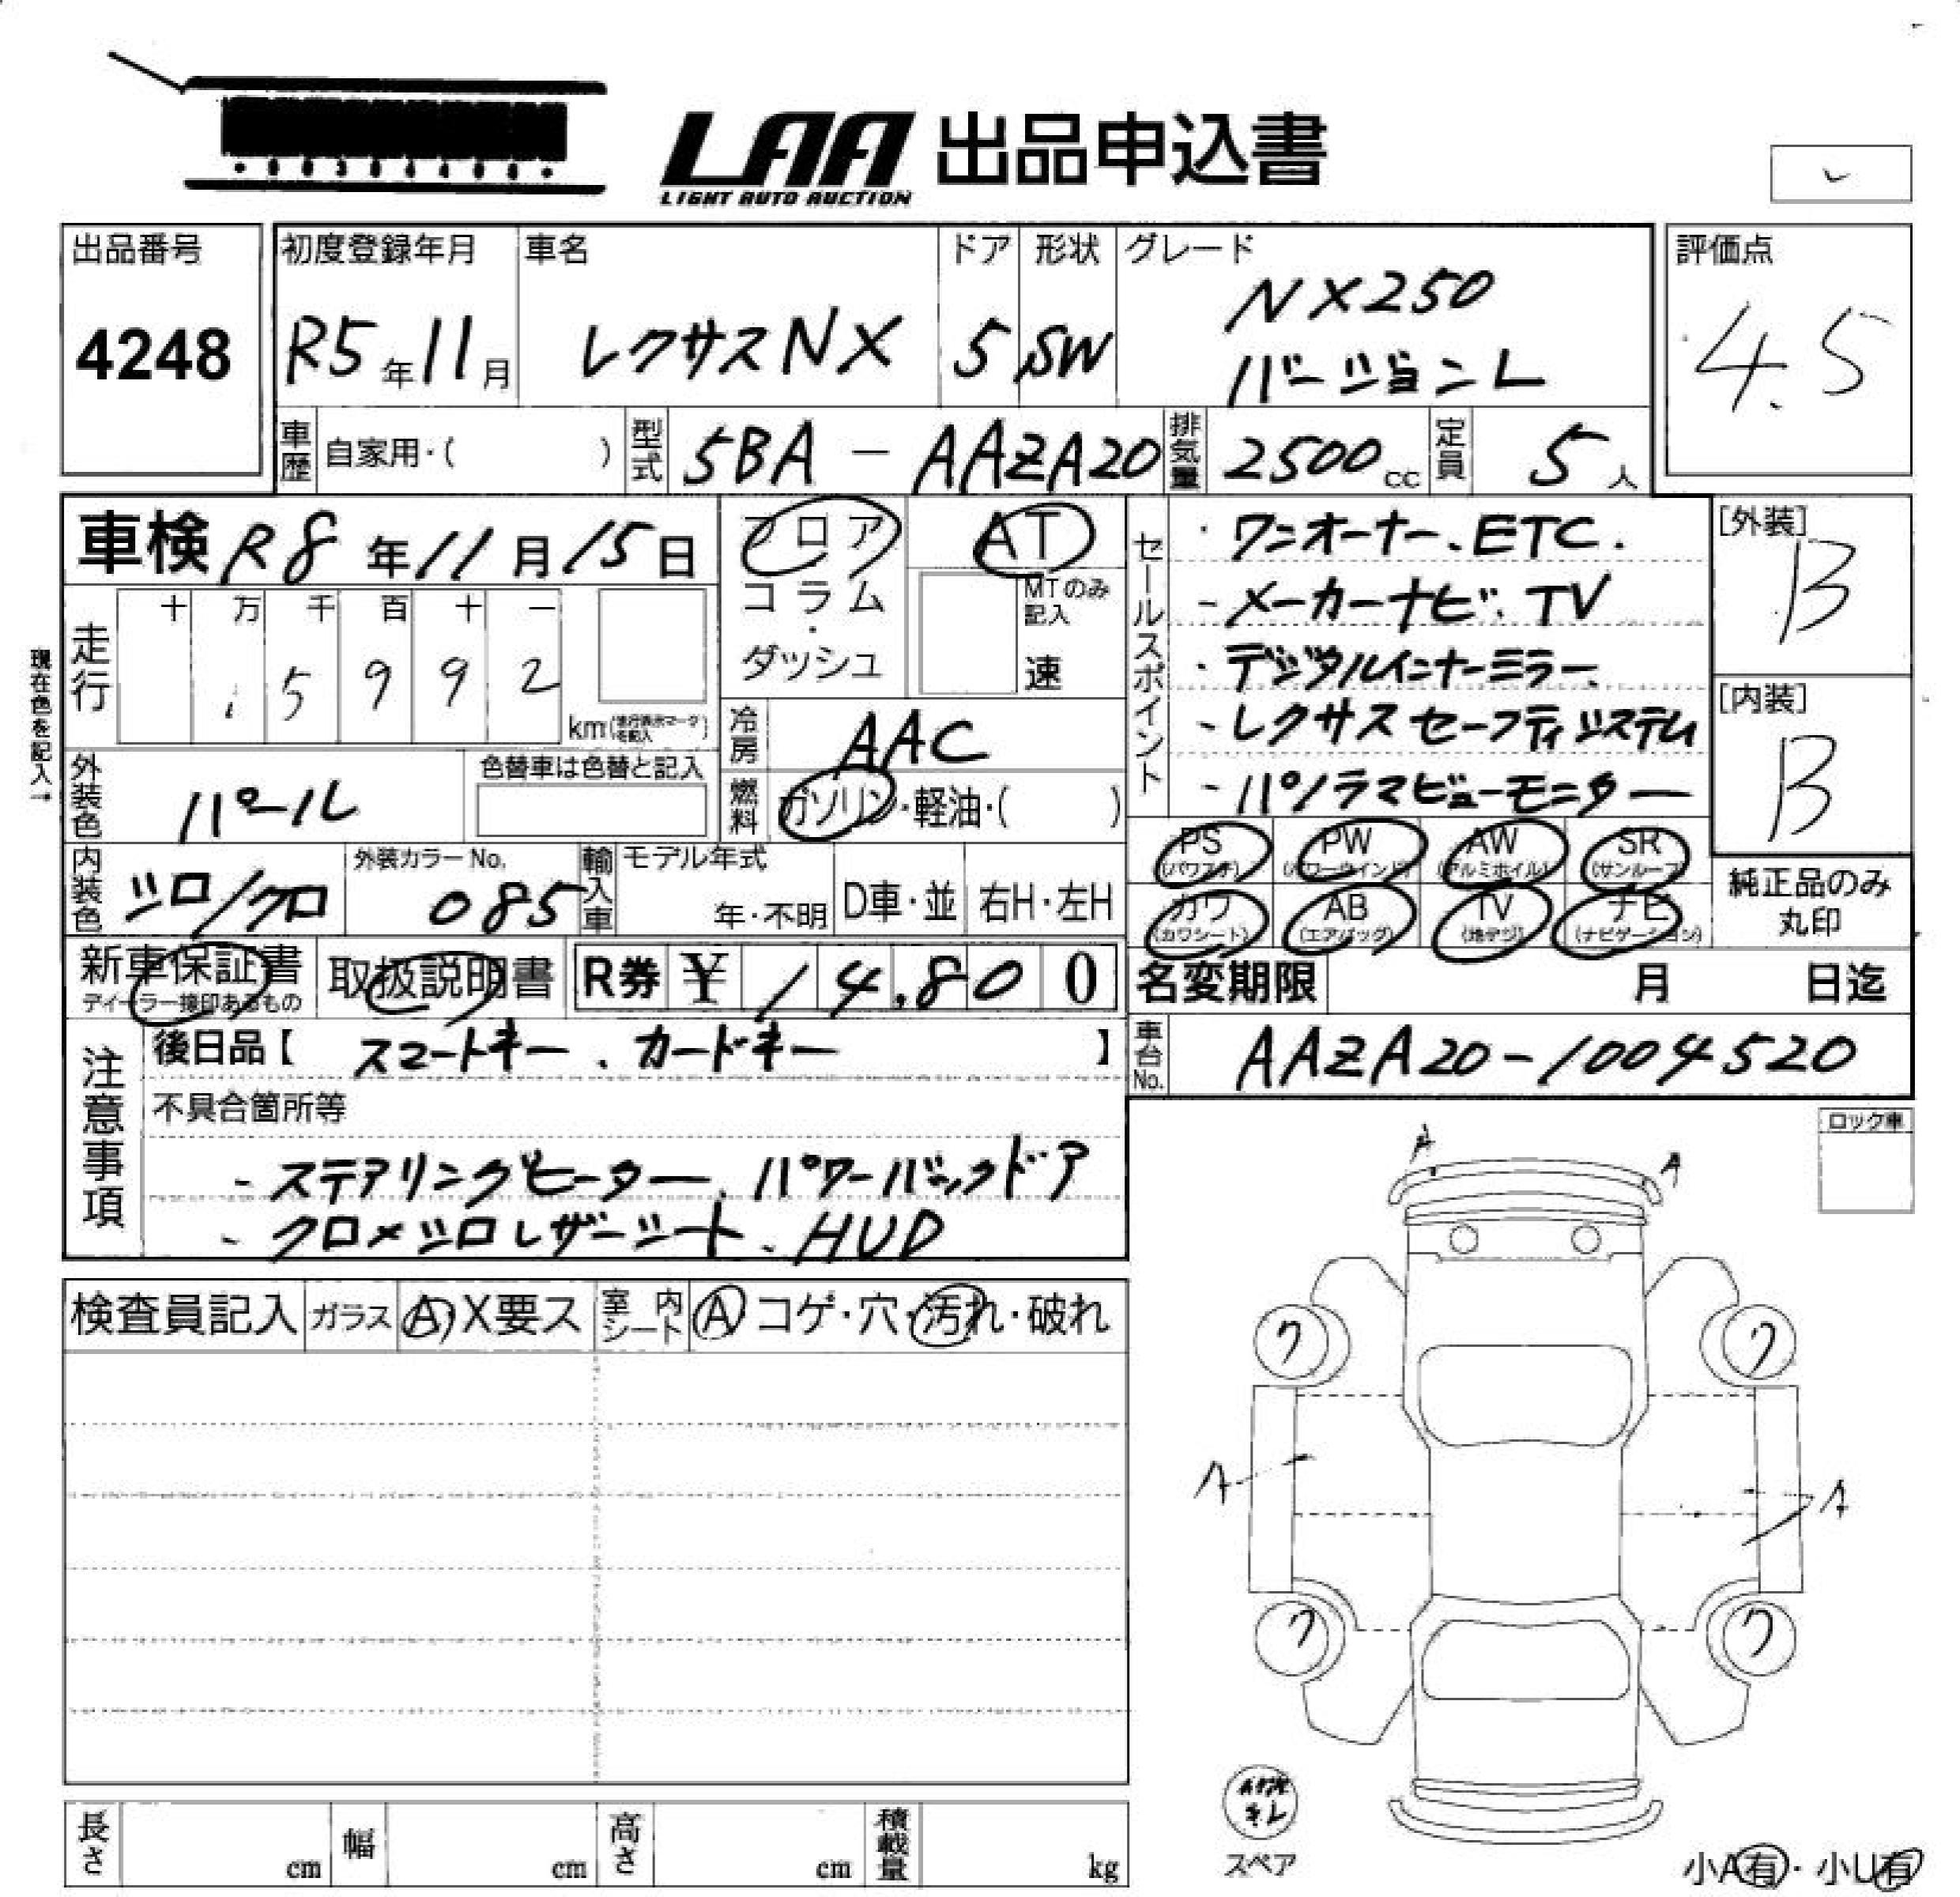 LAA 出品申込書
LIGHT AUTO AUCTION
出品番号
4248
初度登録年月
R5年11月
車名
レクサスNX
ドア
5
形状
SW
グレード
NX250
バージョンL
評価点
4.5
車歴 自家用・( )
型式 5BA - AAZA20
排気量 2500cc
定員 5人
車検 R8年11月15日
フロア
コラム
・
ダッシュ
AT
MTのみ
記入
速
セールスポイント
・ワンオーナー、ETC.
- メーカーナビ、TV
・デジタルインナーミラー、
- レクサスセーフティシステム
- パノラマビューモニター
[外装]
B
[内装]
B
現在色を記入→
走行
十 万 千 百 十 一
5 9 9 2
km(走行表示マークを記入)
冷房 AAC
燃料 ガソリン・軽油・( )
外装色 パール
色替車は色替と記入
内装色 シロ/クロ
外装カラーNo.
085
輸入車
モデル年式
年・不明
D車・並
右H・左H
PS (パワステ)
PW (パワーウインド)
AW (アルミホイル)
SR (サンルーフ)
カワ (カワシート)
AB (エアバッグ)
TV (地デジ)
ナビ (ナビゲーション)
純正品のみ
丸印
新車保証書
ディーラー捺印あるもの
取扱説明書
R券 ¥ 14,800
名変期限 月 日迄
注意事項
後日品【 スマートキー、カードキー 】
車台No. AAZA20-1004520
不具合箇所等
- ステアリングヒーター、パワーバックドア
- クロ×シロレザーシート、HUD
ロック車
検査員記入
ガラス A・X要ス
室内シート A コゲ・穴・汚れ・破れ
A
A
ワ
ワ
A
A
ワ
ワ
キレ
スペア
長さ cm
幅 cm
高さ cm
積載量 kg
小A有・小U有